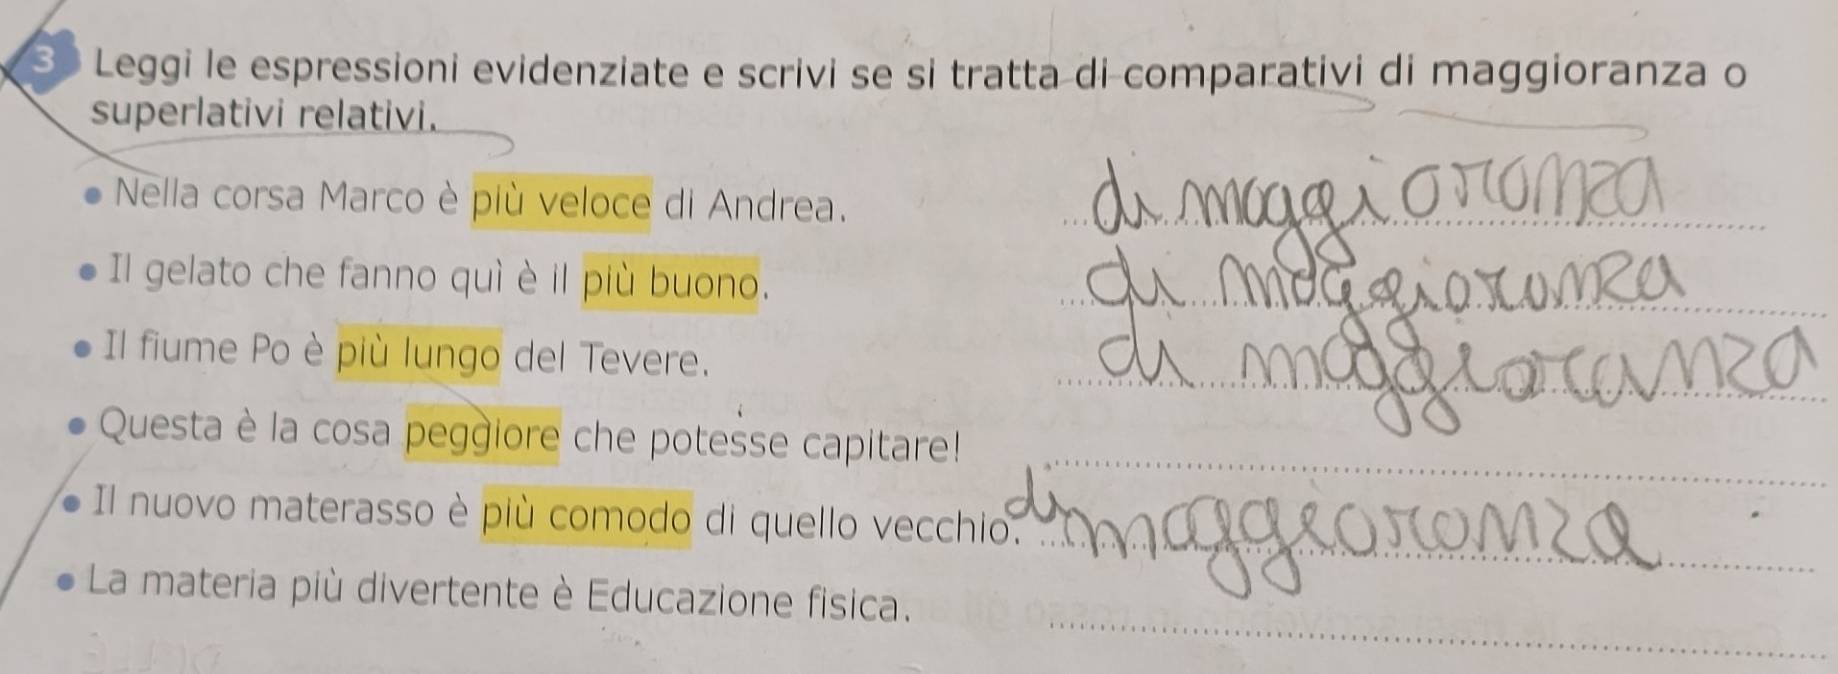 3 Leggi le espressioni evidenziate e scrivi se si tratta di comparativi di maggioranza o
superlativi relativi.
• Nella corsa Marco è più veloce di Andrea. di maggioranza
• Il gelato che fanno quì è il più buono. di maggioranza
• Il fiume Po è più lungo del Tevere. di maggioranza
• Questa è la cosa peggiore che potesse capitare!
• Il nuovo materasso è più comodo di quello vecchio. di maggioranza
• La materia più divertente è Educazione fisica.